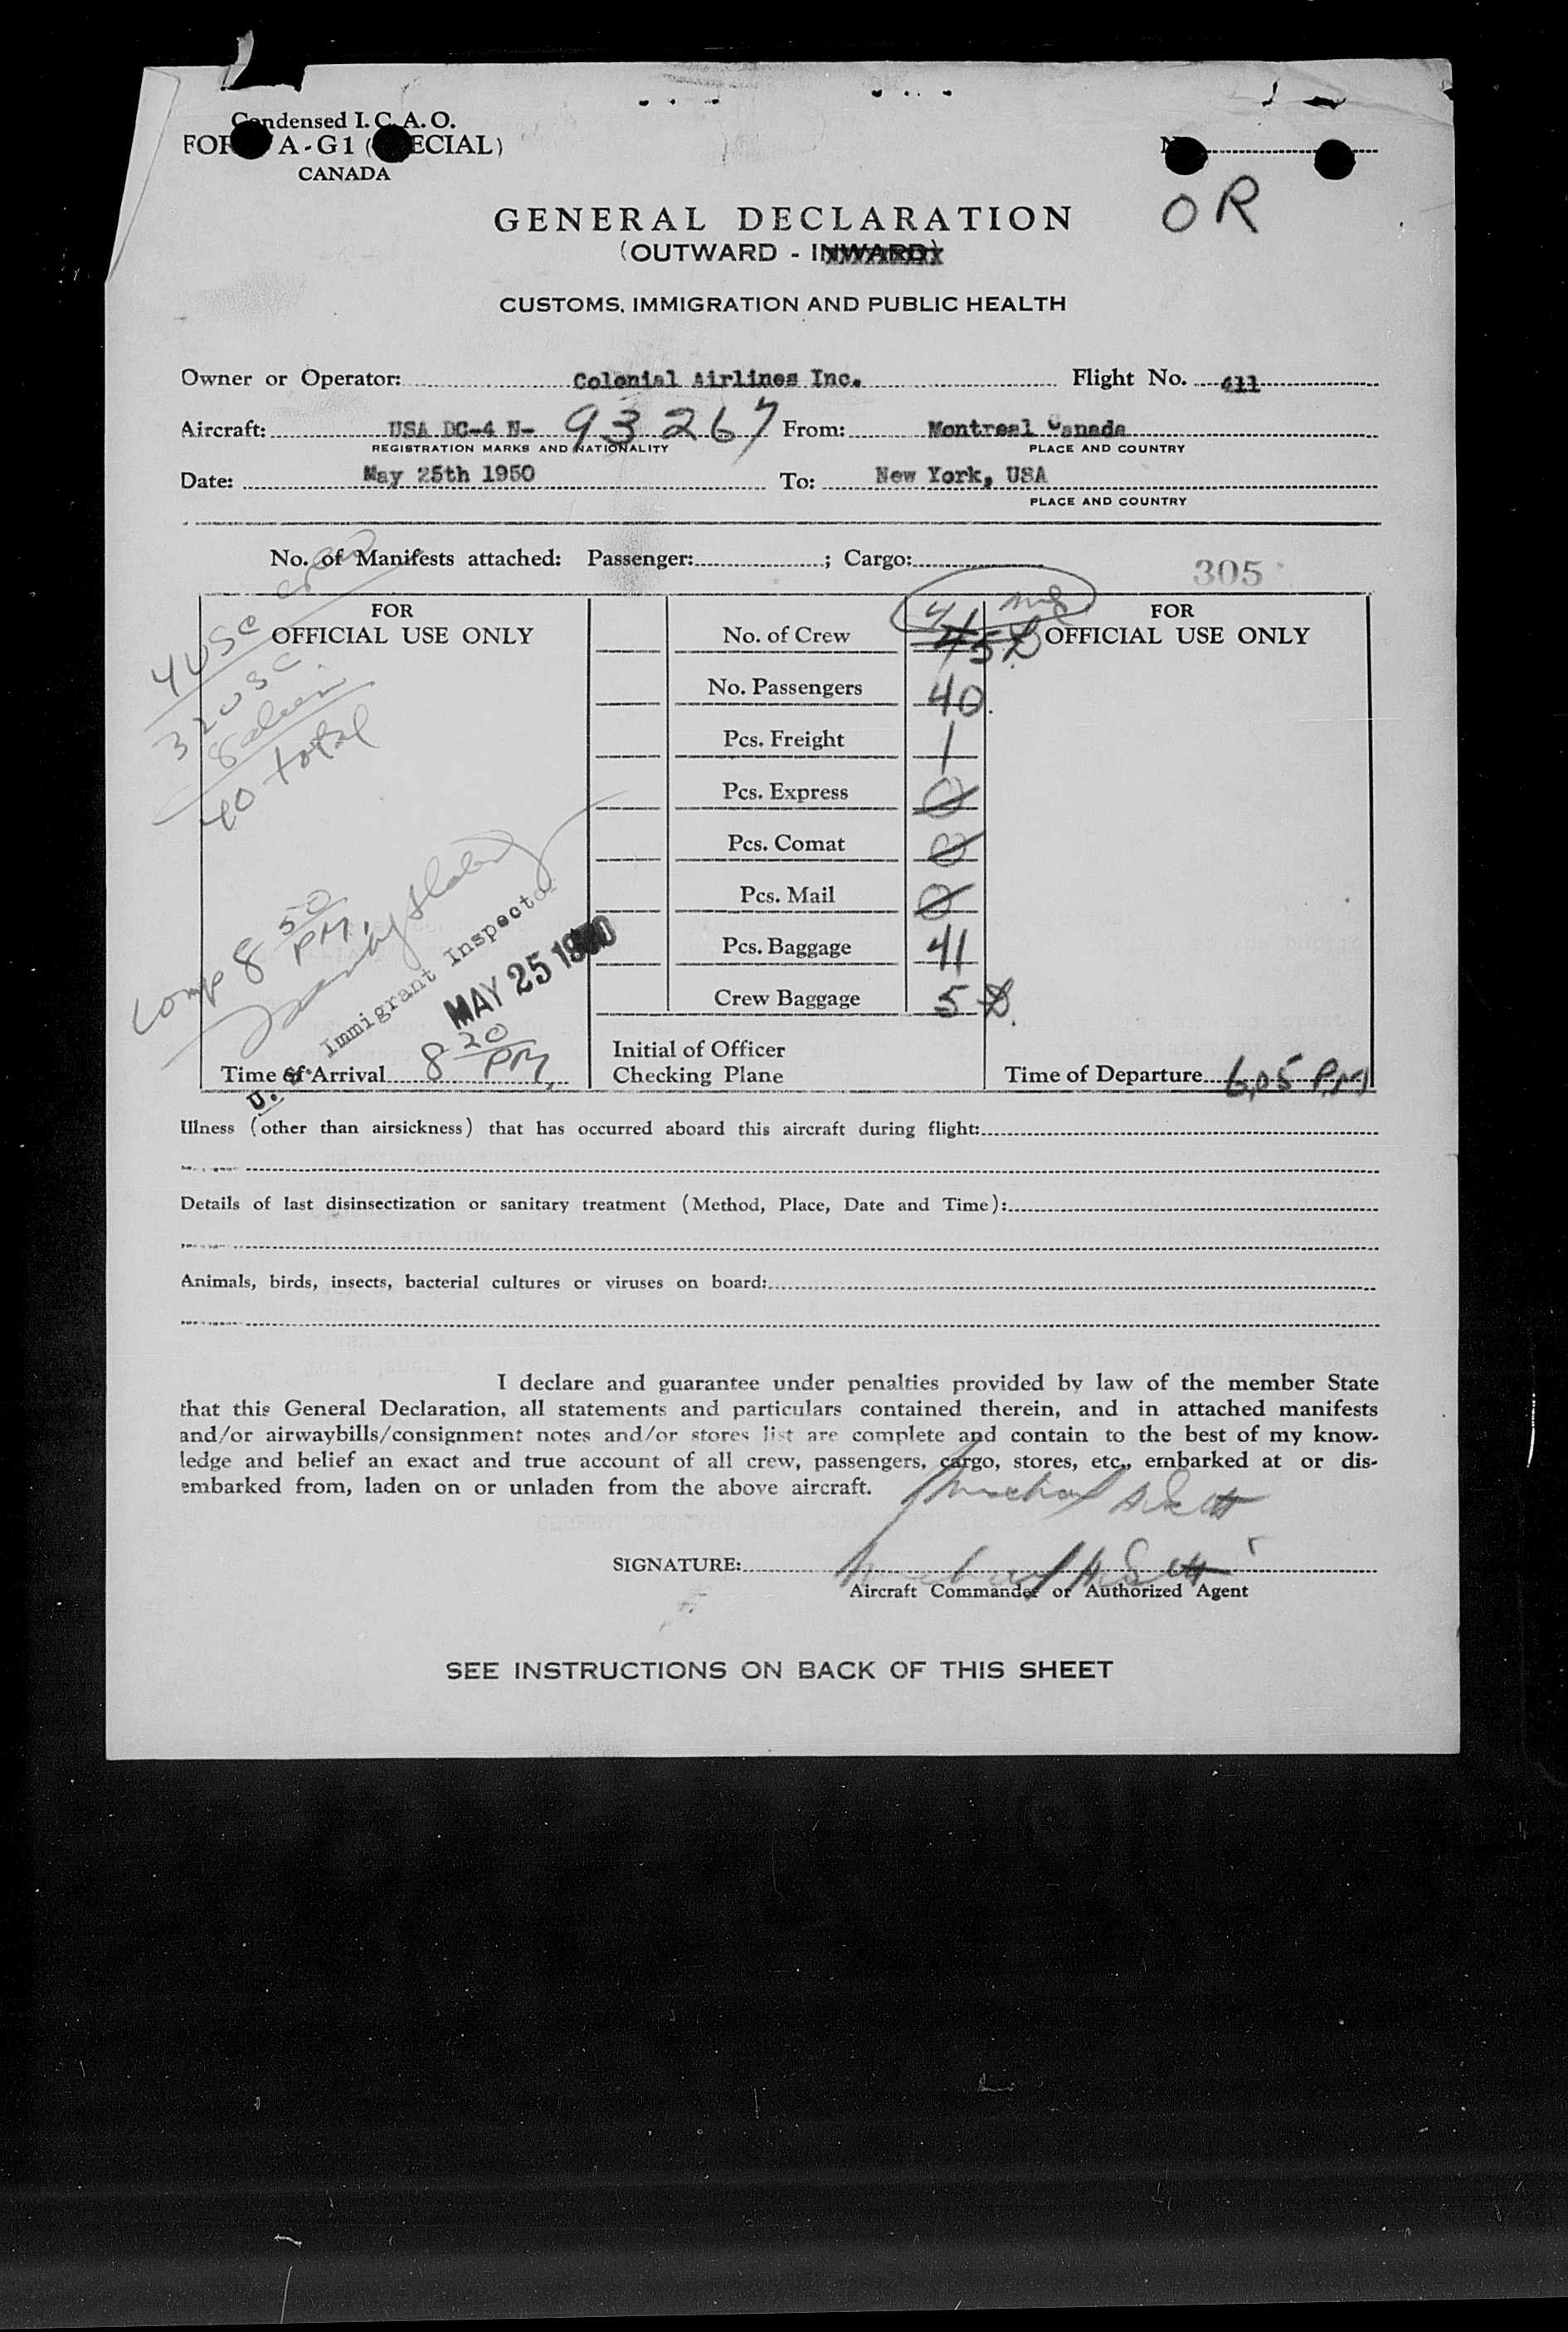 Condensed I.C.A.O.
FORM A-G1 (SPECIAL)
CANADA
OR
GENERAL DECLARATION
(OUTWARD - INWARD)
CUSTOMS, IMMIGRATION AND PUBLIC HEALTH
Owner or Operator: Colonial Airlines Inc. Flight No. 411
Aircraft: USA DC-4 N- 93267 From: Montreal Canada
REGISTRATION MARKS AND NATIONALITY PLACE AND COUNTRY
Date: May 25th 1950 To: New York, USA
PLACE AND COUNTRY
No. of Manifests attached: Passenger: ; Cargo:
305
4 USC crew
32 USC
8 alien
40 total
FOR
OFFICIAL USE ONLY
No. of Crew 4 5
No. Passengers 40
Pcs. Freight 1
Pcs. Express 0
Pcs. Comat 0
Pcs. Mail 0
Pcs. Baggage 41
Crew Baggage 5
FOR
OFFICIAL USE ONLY
Comp 8 50 PM.
U. S. Immigrant Inspector
MAY 25 1950
Time of Arrival 8 20 PM
Initial of Officer
Checking Plane
Time of Departure 6.05 P.M
Illness (other than airsickness) that has occurred aboard this aircraft during flight:
Details of last disinsectization or sanitary treatment (Method, Place, Date and Time):
Animals, birds, insects, bacterial cultures or viruses on board:
I declare and guarantee under penalties provided by law of the member State
that this General Declaration, all statements and particulars contained therein, and in attached manifests
and/or airwaybills/consignment notes and/or stores list are complete and contain to the best of my know-
ledge and belief an exact and true account of all crew, passengers, cargo, stores, etc., embarked at or dis-
embarked from, laden on or unladen from the above aircraft.
Michael A Scott
SIGNATURE: Michael A Scott
Aircraft Commander or Authorized Agent
SEE INSTRUCTIONS ON BACK OF THIS SHEET